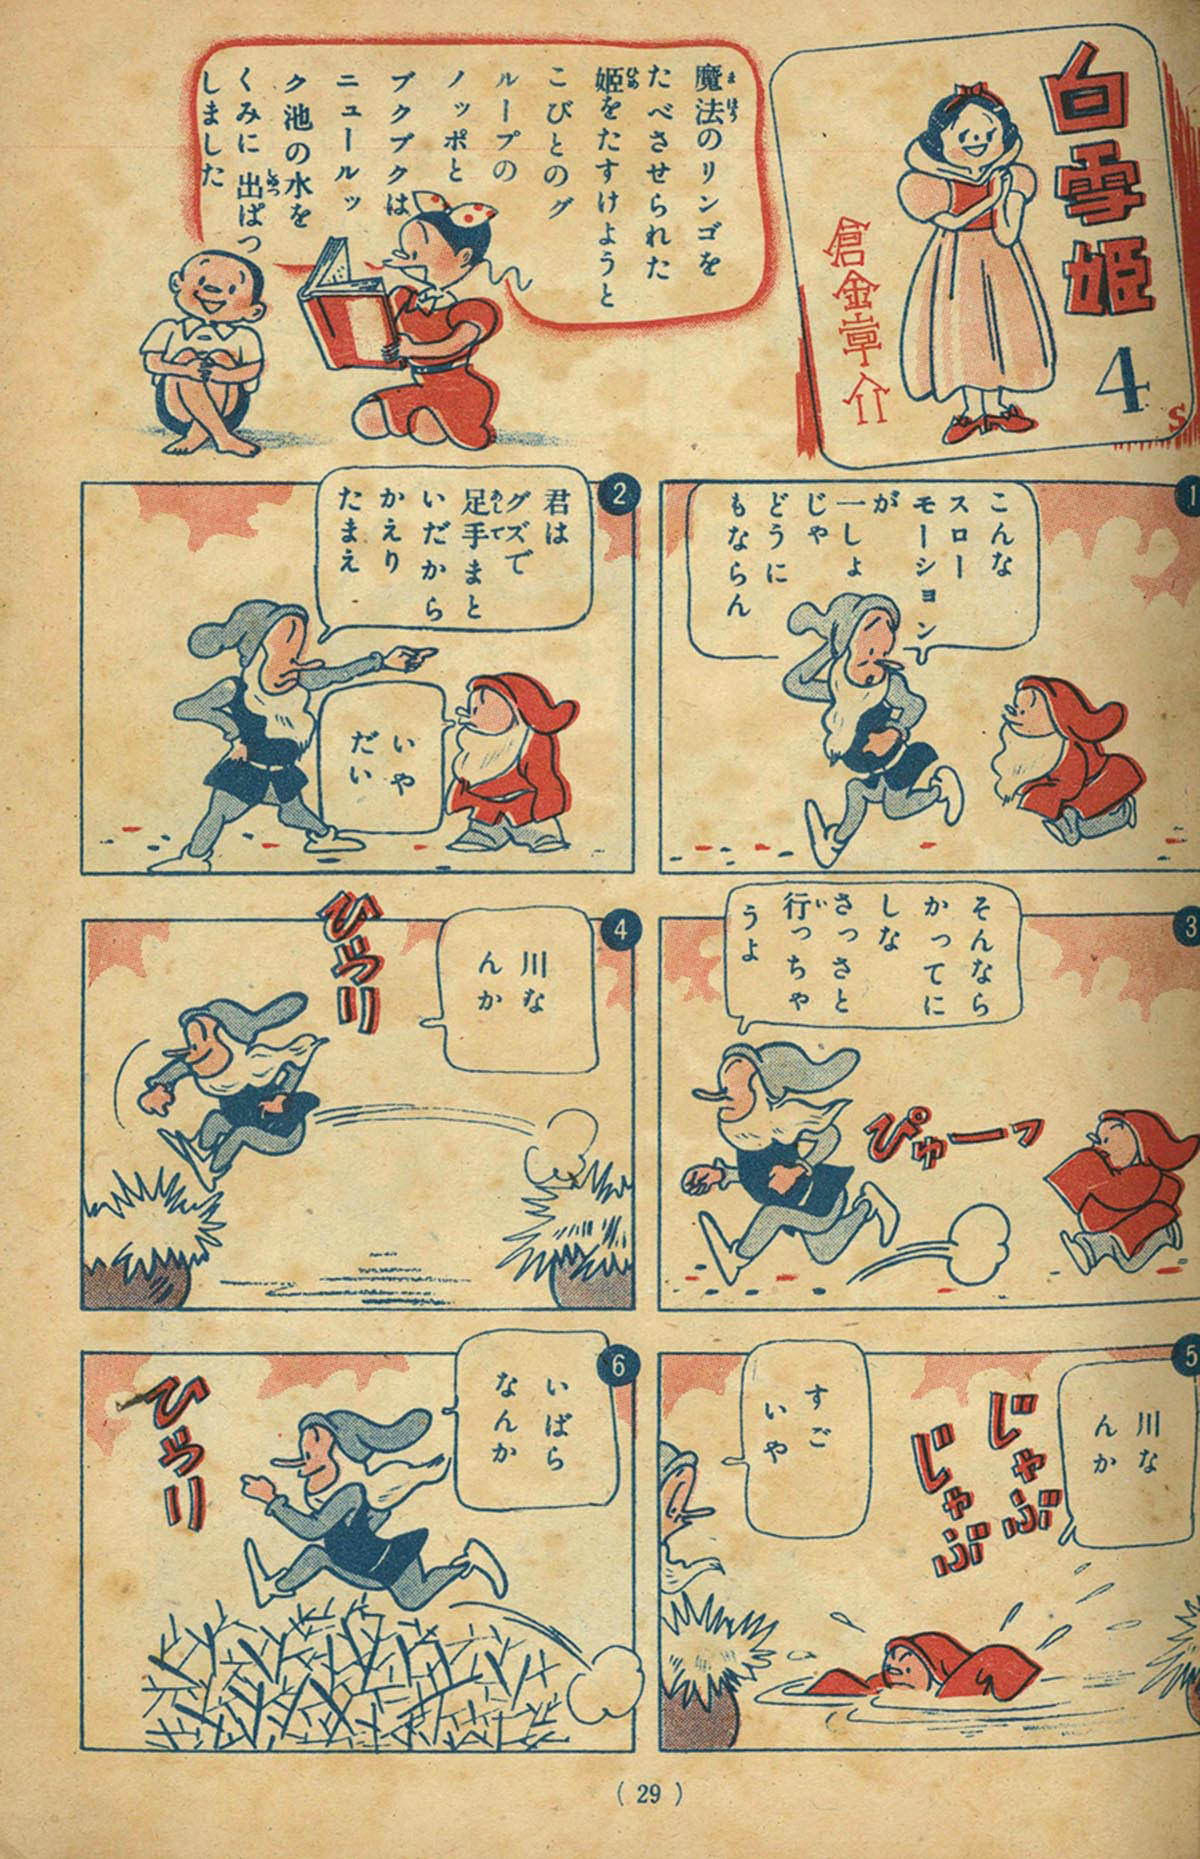 白雪姫
4
倉金章介
S
魔法のリンゴを
たべさせられた
姫をたすけようと
こびとのグ
ループの
ノッポと
ブクブクは
ニュールッ
ク池の水を
くみに出ぱつ
しました
1
こんな
スロー
モーション
が
一しょ
じゃ
どうに
もならん
2
君は
グズで
足手まと
いだから
かえり
たまえ
いや
だい
3
そんなら
かってに
しな
さっさと
行っちゃ
うよ
ぴゅーっ
4
川な
んか
ひらり
5
川な
んか
じゃぶ
じゃぶ
すご
いや
6
いばら
なんか
ひらり
( 29 )